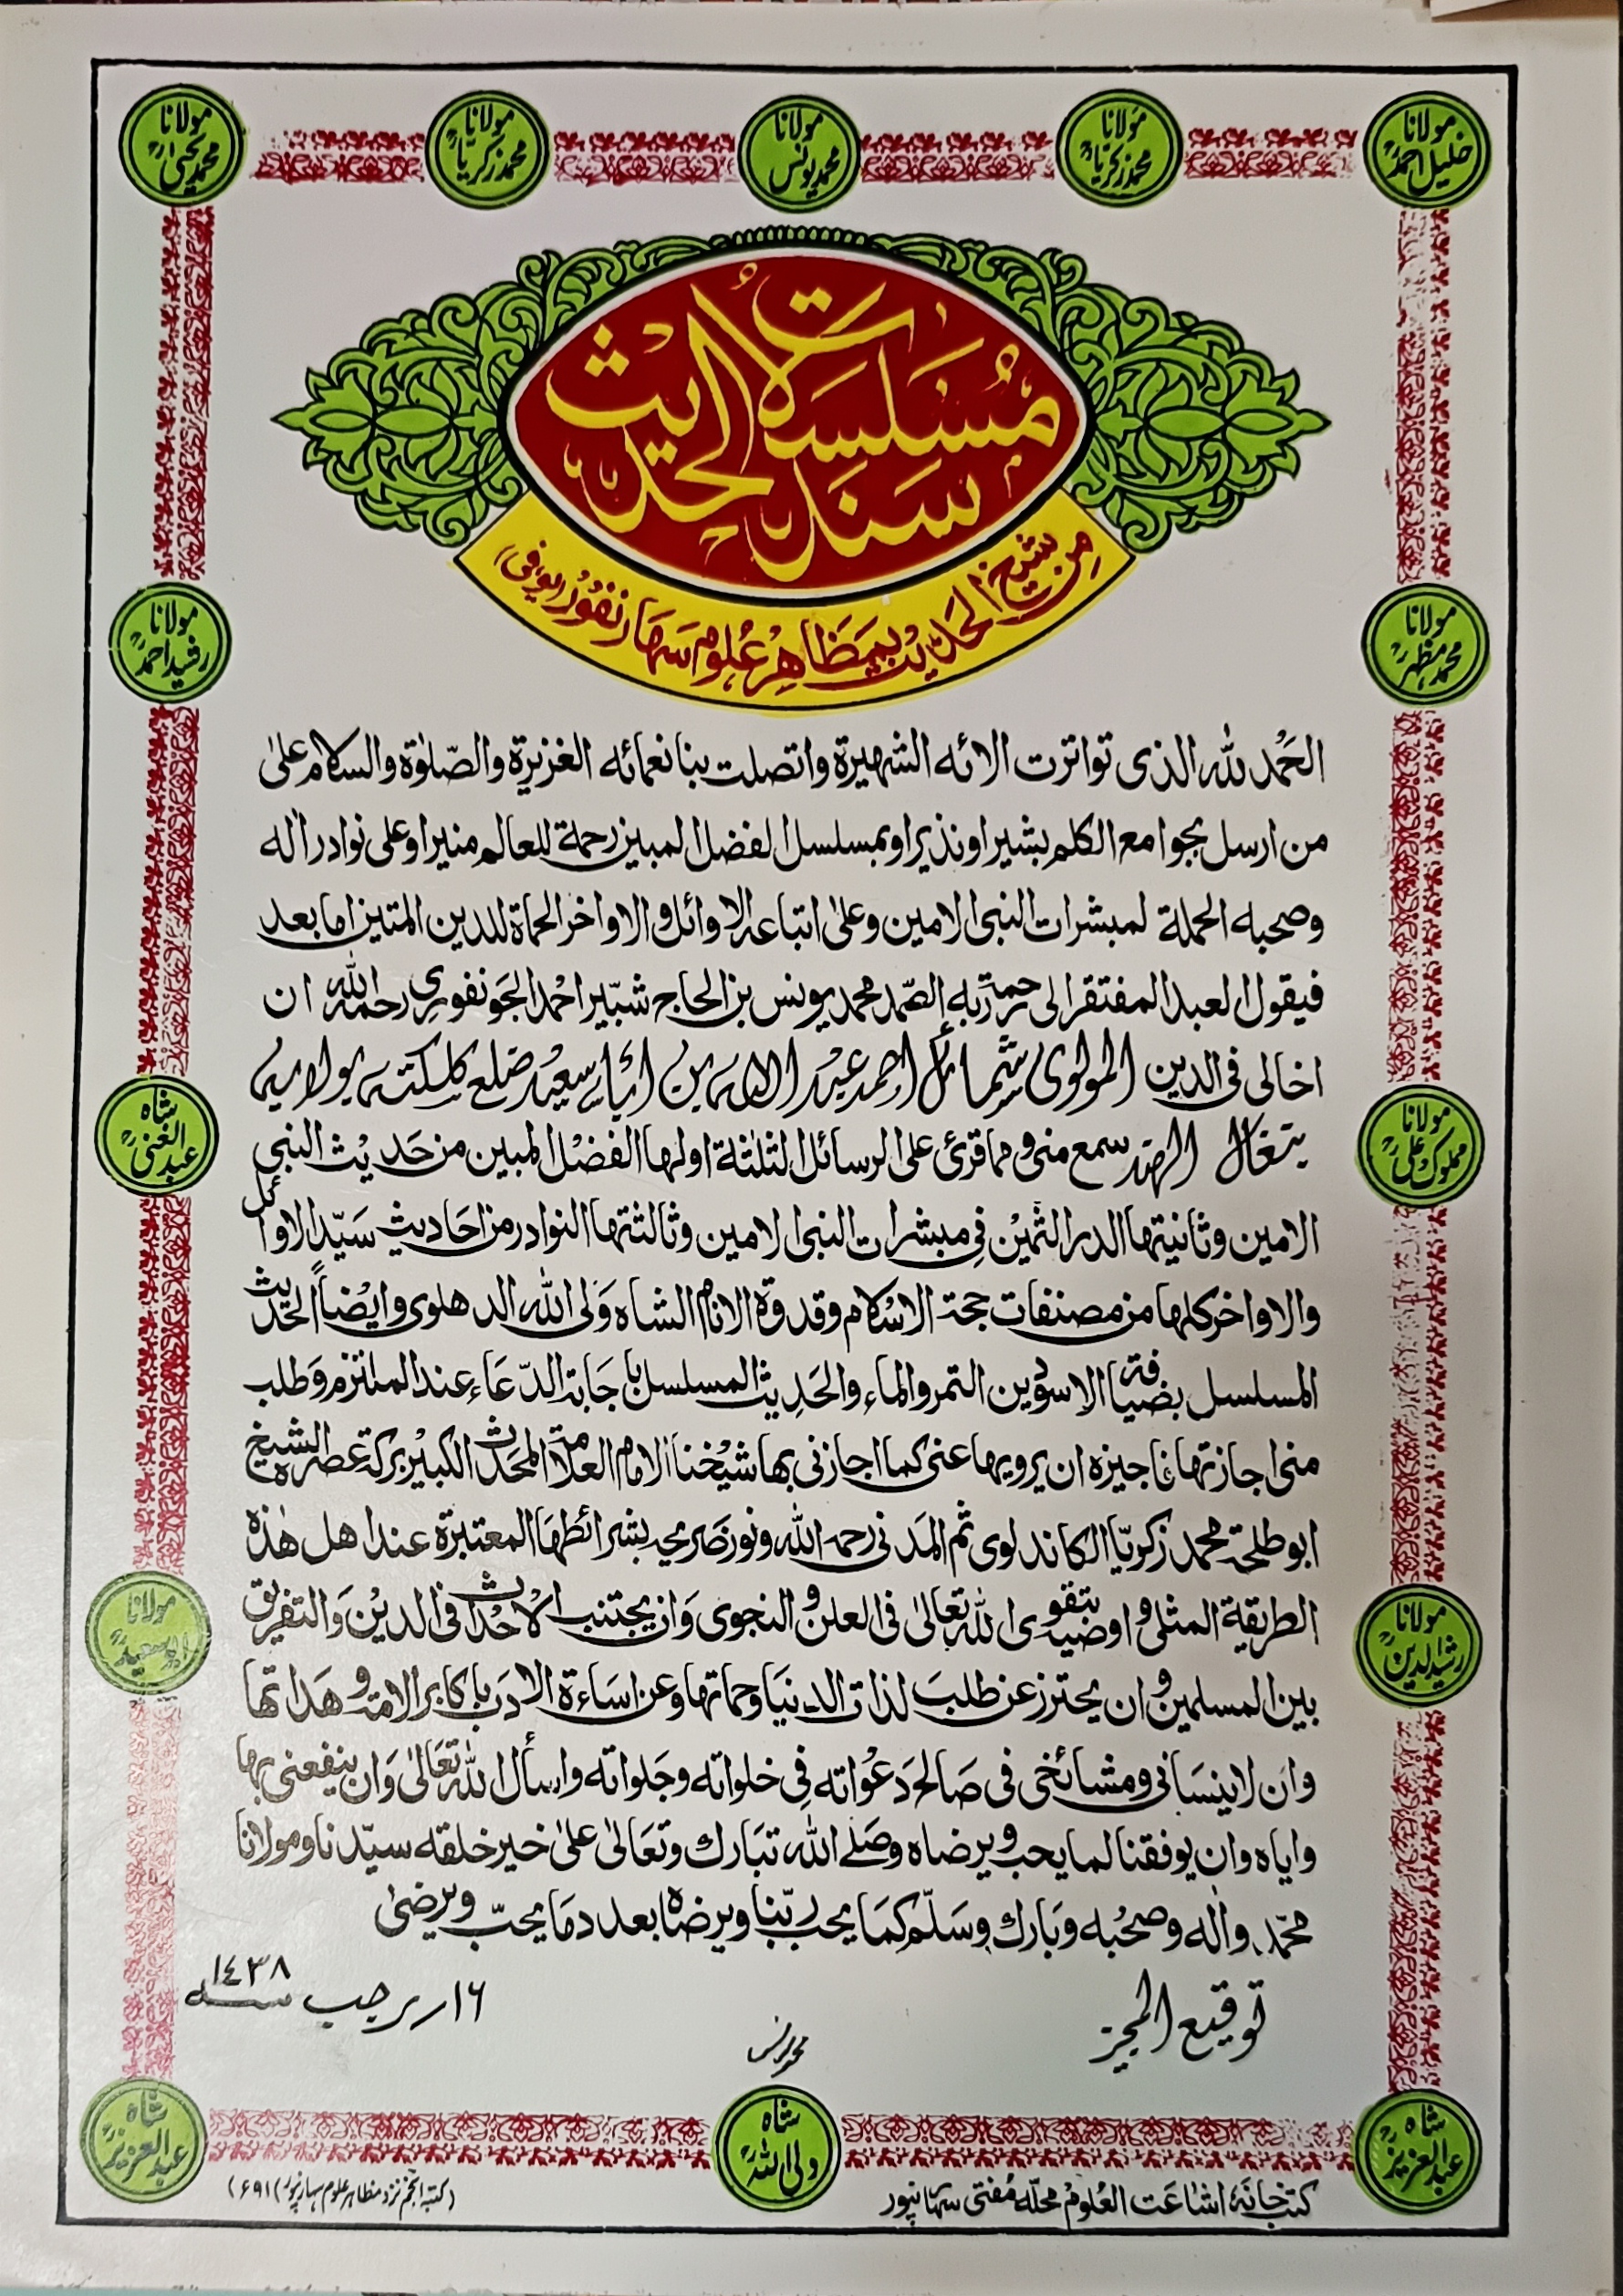 مولانا خلیل احمدؒ
مولانا محمد زکریاؒ
مولانا محمد یونس
مولانا محمد زکریاؒ
مولانا محمد یحییٰؒ
مُسَلسَلات
سَنَد الحَدیث
مِن شیخ الحَدیث بمَظاهِر عُلوم سَهارنفور (یو، فی)
مولانا رشید احمدؒ
مولانا محمد مظہرؒ
الحَمْد لله الذى تواترت الائه الشهيرة واتصلت بنا نعمائه الغزيرة والصّلوٰة والسلام علىٰ
من ارسل بجوامع الكلم بشيرا ونذيرا وبمسلسل الفضل المبين رحمة للعالم منيرا وعلى نوادر اٰله
وصحبه الحملة لمبشرات النبى الامين وعلىٰ اتباعه الاوائل والاواخر الحماة للدين المتين اما بعد
فيقول العبد المفتقر الى رحمة ربه الصّمد محمد يونس بن الحاج شبّير احمد الجونفورى رحمه الله ان
اخالى فى الدين المولوى شمائل احمد عبد الله بن
الهند سمع منى ومما قرئ على الرسائل الثلثة اولها الفضل المبين من حَديث النبى
الامين وثانيتها الدر الثمين فى مبشرات النبى الامين وثالثتها النوادر من احَاديث سَيّد الاوائل
والاواخر كلها من مصنفات حجة الاسْلام وقدوة الانام الشاه وَلى الله الدهلوى وايضاً الحديث
المسلسل بضيافة الاسودين التمر والماء والحَديث المسلسل باجابة الدّعَاء عند الملتزم وَطلب
منى اجازتها فاجيزه ان يرويها عنى كما اجازنى بها شيْخنا الامام العلامة المحَدث الكبيْر بركة عصره الشيخ
ابوطلحة محمد زكريّا الكاندلوى ثم المَدنى رحمه الله ونور ضريحه بشرائطهَا المعتبرة عند اهل هٰذه
الطريقة المثلى واوصيه بتقوى الله تعالىٰ فى العلن والنجوى وَان يجتنب الاحْداث فى الديْن وَالتفريق
بين المسلمين وان يحترز عن طلبَ لذات الدنيَا وحماتها وعن اسَاءة الادب باكابر الامة وهَداتها
وان لا ينسَانى ومشائخى فى صَالح دَعوَاته فى خلواته وجَلواته واسأل الله تعَالىٰ وَان ينفعنى بها
واياه وان يوفقنا لما يحب ويرضاه وصَلے الله تبَارك وتعَالىٰ علىٰ خير خلقه سيّدنا ومولانا
محمّد واٰله وصحبْه وَبَارك وسَلّم كمَا يحب ربّنا ويرضاه بعدد مَا يحبّ ويرضىٰ
شاہ عبدالغنیؒ
مولانا مملوک علیؒ
مولانا ابوسعیدؒ
مولانا رشیدالدینؒ
توقیع المجیز
محمد یونس
۱۶؍رجب ۱٤۳۸
شاہ عبدالعزیزؒ
شاہ ولی اللہؒ
شاہ عبدالعزیزؒ
کتب خانہ اشاعت العلوم محلہ مفتی سہارنپور
(کتبہ انجم نزد مظاہر علوم سہارنپور) (۶۹۱)